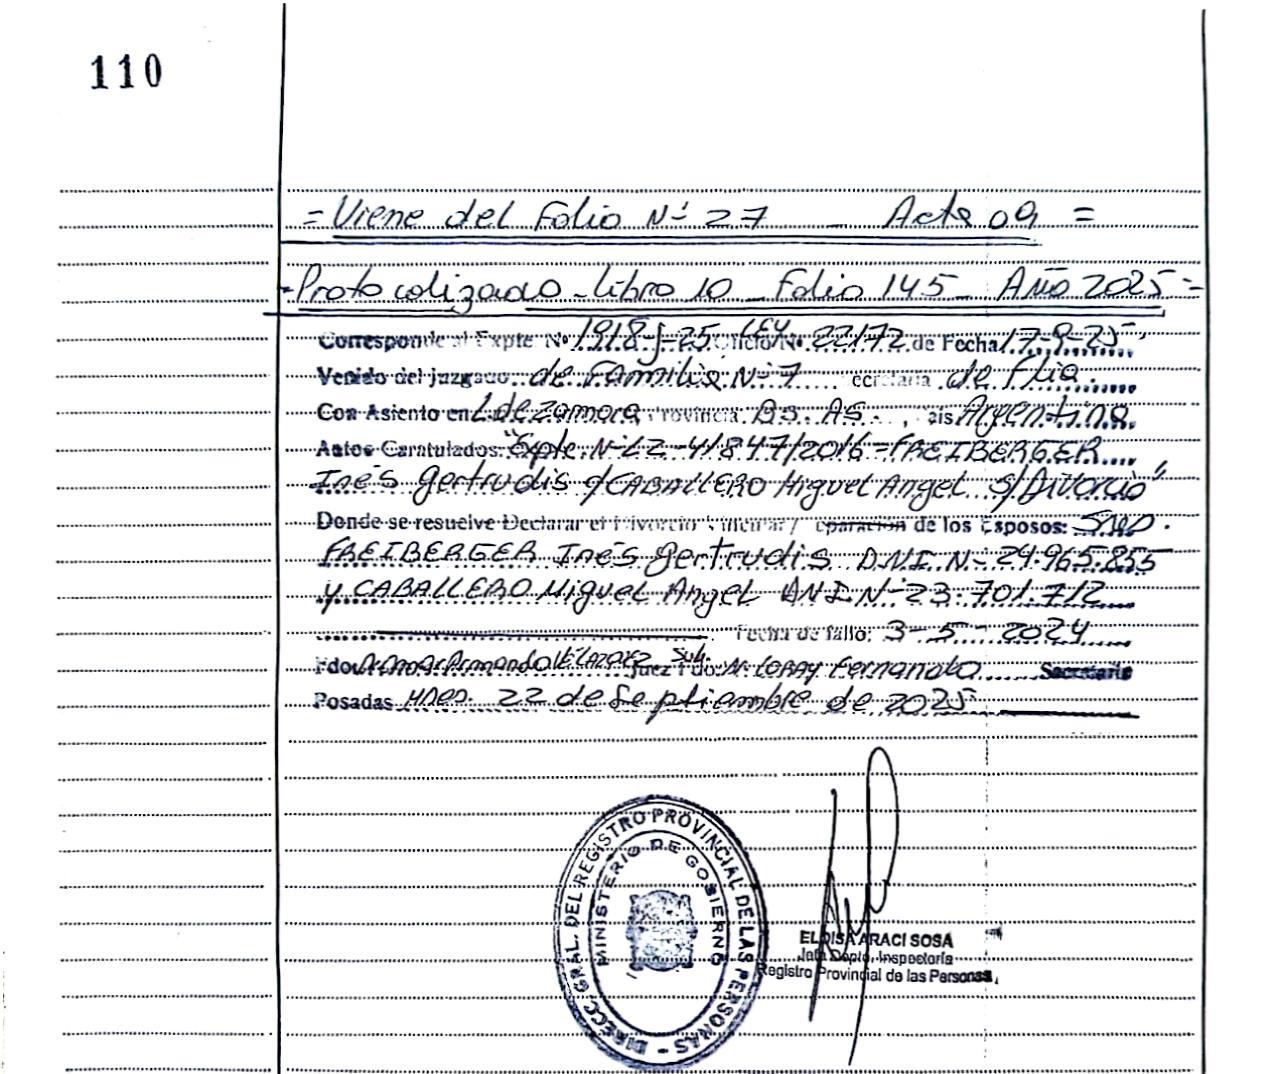 110
= Viene del Folio Nº 27 _ Acta 09 =
- Protocolizado - Libro 10 _ Folio 145 _ Año 2025 -
Corresponde al Expte Nº 1918-J-25 Oficio Nº LEY 22172 de Fecha 17-9-25
Venido del juzgado de Familia Nº 7 ecretaría de Flia.
Con Asiento en L. de Zamora, Provincia Bs. As., ais Argentina.
Autos Caratulados: "Expte. Nº LZ-41847/2016 - FREIBERGER
Inés Gertrudis c/ CABALLERO Miguel Angel s/ Divorcio"
Donde se resuelve Declarar el Divorcio Vincular/ eparación de los Esposos: Sres.
FREIBERGER Inés Gertrudis D.N.I. Nº 24.965.855
y CABALLERO Miguel Angel DNI Nº 23.701.712
Fecha de fallo: 3-5-2024
Fdo. Armando VELAZQUEZ Juez Fdo: Fernando Secretaria
Posadas, Mnes. 22 de Septiembre de 2025
DIRECC. GRAL. DEL REGISTRO PROVINCIAL DE LAS PERSONAS -
MINISTERIO DE GOBIERNO
ELOISA ARACI SOSA
Jefa Dpto. Inspectoría
Registro Provincial de las Personas